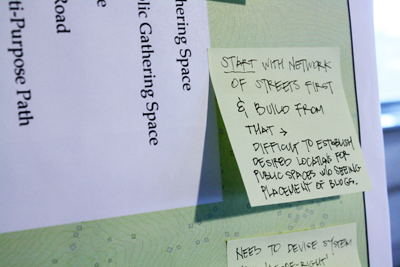 hering Space
lic Gathering Space
e
Road
ti-Purpose Path
START WITH NETWORK
OF STREETS FIRST
& BUILD FROM
THAT →
DIFFICULT TO ESTABLISH
DESIRED LOCATIONS FOR
PUBLIC SPACES W/O SEEING
PLACEMENT OF BLDGS.
NEED TO DEVISE SYSTEM